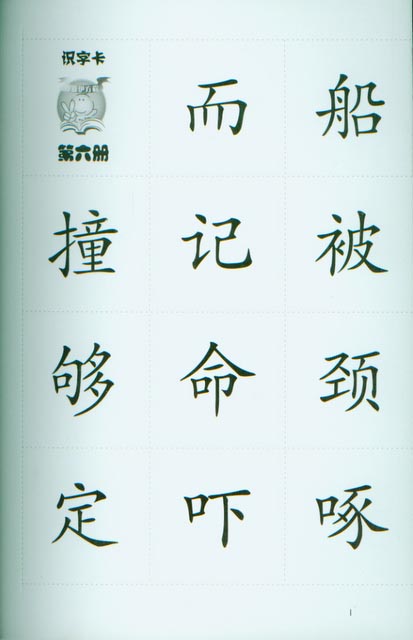 识字卡
第六册
而 船
撞 记 被
够 命 颈
定 吓 啄
1